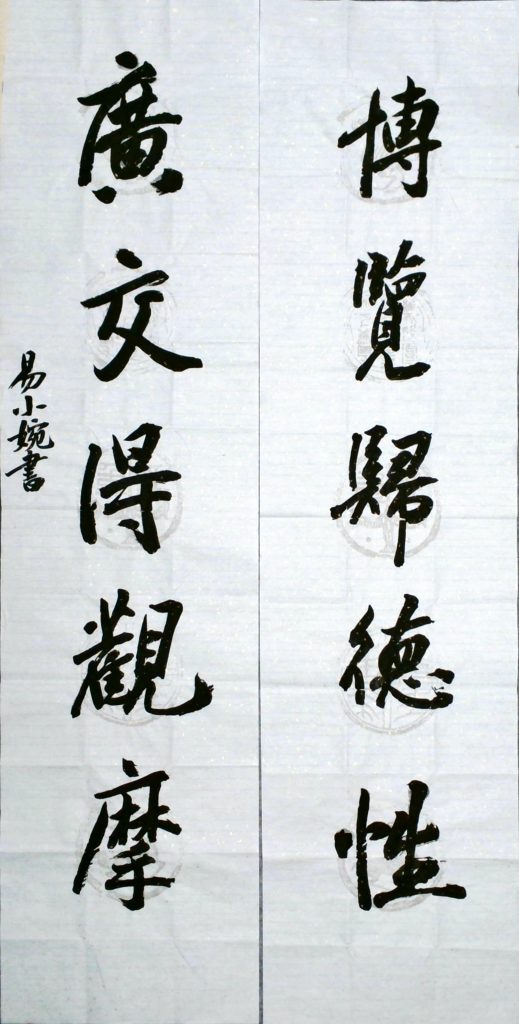 博覽歸德性
廣交得觀摩
易小婉書